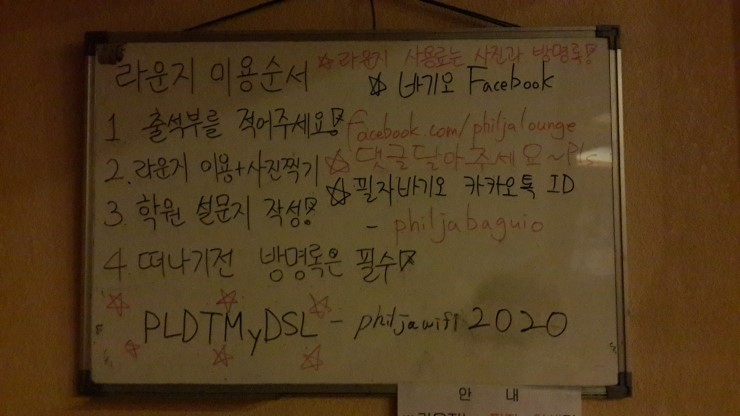 라운지 이용순서
☆라운지 사용료는 사진과 방명록!
☆ 바기오 Facebook
1 출석부를 적어주세요!
facebook.com/philjalounge
2. 라운지 이용+사진찍기
☆ 댓글달아주세요~Pls
3. 학원 설문지 작성!
☆필자바기오 카카오톡 ID
- philjabaguio
4. 떠나기전 방명록은 필수!
PLDTMyDSL - philjawifi2020
안 내